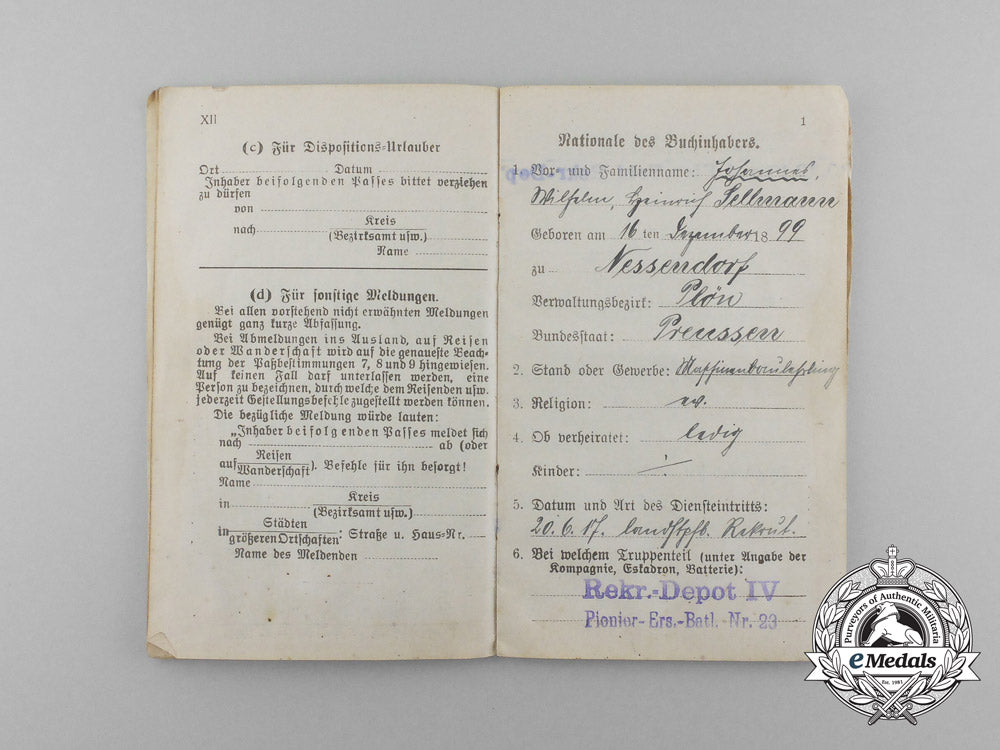 XII
(c) Für Dispositions-Urlauber
Ort Datum
Inhaber beifolgenden Passes bittet verziehen
zu dürfen
von
nach Kreis
(Bezirksamt usw.)
Name
(d) Für sonstige Meldungen.
Bei allen vorstehend nicht erwähnten Meldungen
genügt ganz kurze Abfassung.
Bei Abmeldungen ins Ausland, auf Reisen
oder Wanderschaft wird auf die genaueste Beach-
tung der Paßbestimmungen 7, 8 und 9 hingewiesen.
Auf keinen Fall darf unterlassen werden, eine
Person zu bezeichnen, durch welche dem Reisenden usw.
jederzeit Gestellungsbefehle zugestellt werden können.
Die bezügliche Meldung würde lauten:
„Inhaber beifolgenden Passes meldet sich
nach ab (oder
auf Reisen
Wanderschaft). Befehle für ihn besorgt!
Name
in Kreis
(Bezirksamt usw.)
in Städten
größeren Ortschaften: Straße u. Haus-Nr.
Name des Meldenden
1
Nationale des Buchinhabers.
1. Vor- und Familienname: Johannes,
Wilhelm, Heinrich Sellmann
Geboren am 16 ten Dezember 1899
zu Nessendorf
Verwaltungsbezirk: Plön
Bundesstaat: Preussen
2. Stand oder Gewerbe:
3. Religion: ev.
4. Ob verheiratet: ledig
Kinder: ./.
5. Datum und Art des Diensteintritts:
20.6.17. landstpfl. Rekrut.
6. Bei welchem Truppenteil (unter Angabe der
Kompagnie, Eskadron, Batterie):
Rekr.-Depot IV
Pionier-Ers.-Batl. Nr. 23
Purveyors of Authentic Militaria
eMedals
Est. 1981